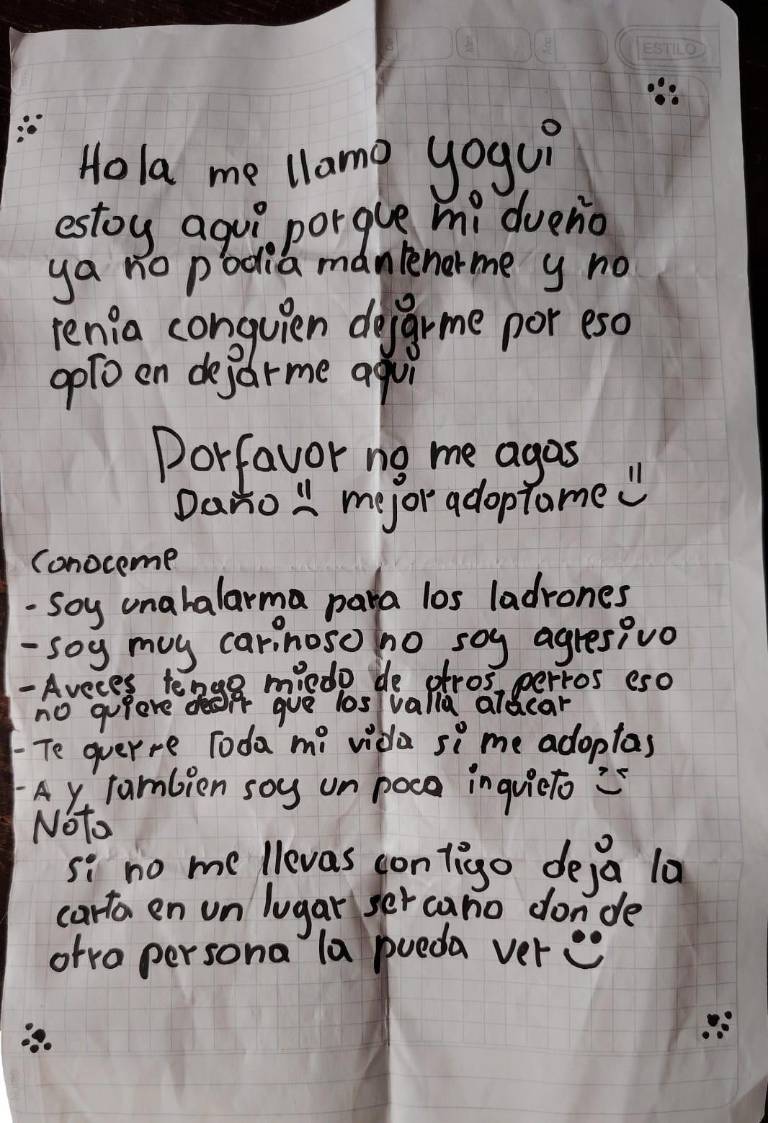 ESTILO
Hola me llamo yogui
estoy aqui porque mi dueño
ya no podia mantenerme y no
tenia conquien dejarme por eso
opto en dejarme aqui
Porfavor no me agas
Daño mejor adoptame
Conoceme
- Soy unahalarma para los ladrones
- soy muy cariñoso no soy agresivo
- Aveces tengo miedo de otros perros eso
no quiere decir que los valla atacar
- Te querre toda mi vida si me adoptas
- A y tambien soy un poco inquieto
Nota
si no me llevas contigo deja la
carta en un lugar sercano donde
otra persona la pueda ver